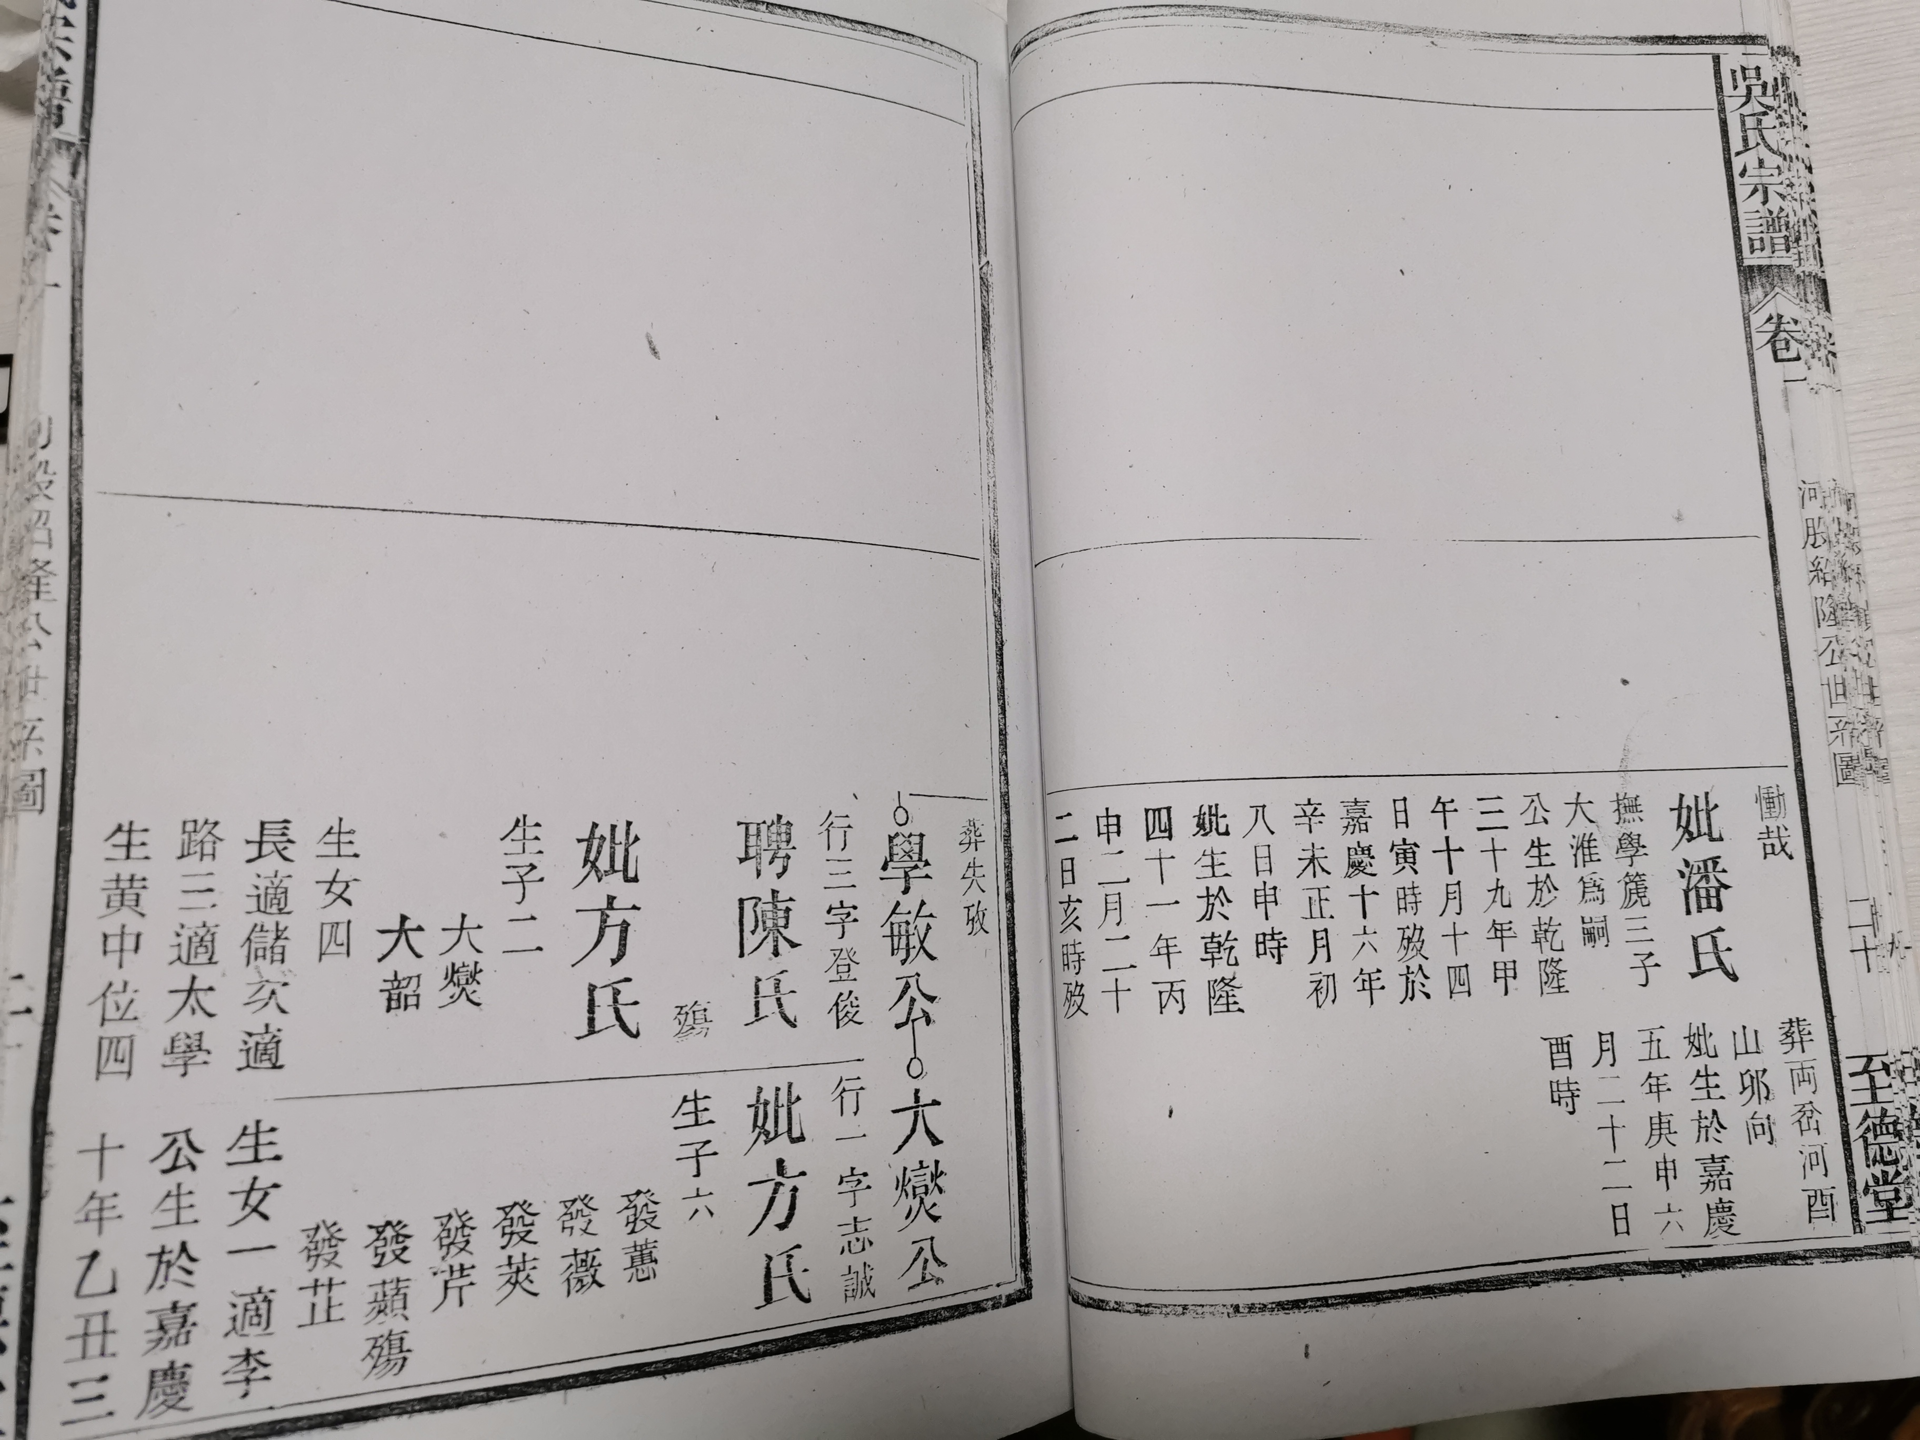 吳氏宗譜
卷一
河股紹隆公世系圖
二十
至德堂
慟哉
妣潘氏
撫學箎三子
大淮爲嗣
公生於乾隆
三十九年甲
午十月十四
日寅時歿於
嘉慶十六年
辛未正月初
八日申時
妣生於乾隆
四十一年丙
申二月二十
二日亥時歿
葬両岔河酉
山卯向
妣生於嘉慶
五年庚申六
月二十二日
酉時
葬失攷
學敏公
行三字登俊
聘陳氏
殤
妣方氏
生子二
大燮
大韶
生女四
長適儲次適
路三適太學
生黄中位四
大燮公
行一字志誠
妣方氏
生子六
發蕙
發薇
發莢
發芹
發蘋殤
發芷
生女一適李
公生於嘉慶
十年乙丑三
宗譜
卷一
股紹隆公世系圖